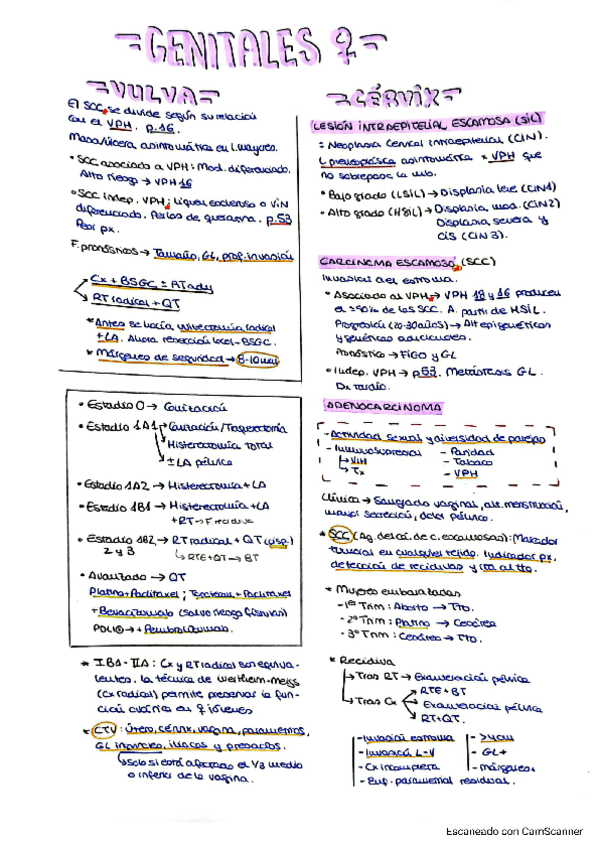 GENITALES ♀
VULVA
El SCC se divide según su relación
con el VPH. p.16.
Masa/úlcera asintomática en l. mayores.
• SCC asociado a VPH: Mod. diferenciado.
Alto riesgo → VPH 16
• SCC indep. VPH: Liquen escleroso o VIN
diferenciado. Perlas de queratina. p.53
Peor px.
F. pronósticos → Tamaño, GL, prof. invasión
Cx + BSGC = RT ady
RT radical + QT
* Antes se hacía vulvectomía radical
+ LA. Ahora resección local + BSGC.
* Márgenes de seguridad → 8-10mm
• Estadío 0 → Conización
• Estadío 1A1 → Conización/Traquelectomía
Histerectomía total
± LA pélvica
• Estadío 1A2 → Histerectomía + LA
• Estadío 1B1 → Histerectomía + LA
+ RT → F. recidiva
• Estadío 1B2 → RT radical + QT (cisp.)
2 y 3
RTE + QT → BT
• Avanzado → QT
Platino + Paclitaxel; Topotecan + Paclitaxel
+ Bevacizumab (salvo riesgo fístulas)
PDL1⊕ → + Pembrolizumab.
* IB1 - IIA: Cx y RT radical son equiva-
lentes. La técnica de Wertheim-Meigs
(Cx radical) permite preservar la fun-
ción ovárica en ♀ jóvenes
* CTV: útero, cérvix, vagina, parametrios,
GL inguinales, ilíacos y presacros.
Solo si está afectado el 1/3 medio
o inferior de la vagina.
CÉRVIX
LESIÓN INTRAEPITELIAL ESCAMOSA (SIL)
= Neoplasia Cervical Intraepitelial (CIN).
L. preneoplásica asintomática x VPH que
no sobrepasa la mb.
• Bajo grado (LSIL) → Displasia leve (CIN1)
• Alto grado (HSIL) → Displasia mod. (CIN2)
Displasia severa y
CIS (CIN 3).
CARCINOMA ESCAMOSO (SCC)
Invasión del estroma.
• Asociado al VPH → VPH 18 y 16 producen
el >90% de los SCC. A partir de HSIL.
Progresión (20-30 años) → Alt epigenéticas
y genéticas adicionales.
Pronóstico → FIGO y GL
• Indep. VPH → p53. Metástasis GL.
Dx tardío.
ADENOCARCINOMA
- Actividad sexual y diversidad de parejas
- Inmunosupresión
VIH
Tx
- Paridad
- Tabaco
- VPH
Clínica → Sangrado vaginal, alt. menstruación,
mayor secreción, dolor pélvico.
* SCC (Ag. del ca. de c. escamosas): Marcador
tumoral en cualquier tejido. Indicador px,
detección de recidivas y rta al tto.
* Mujeres embarazadas
- 1er Trim: Aborto → Tto.
- 2º Trim: Platino → Cesárea
- 3er Trim: Cesárea → Tto.
* Recidiva
Tras RT → Exanteración pélvica
Tras Cx
RTE + BT
Exanteración pélvica
RT + QT.
- Invasión estroma
- Invasión L-V
- Cx incompleta
- Enf. parametrial residual.
- >4cm
- GL+
- márgenes+
Escaneado con CamScanner